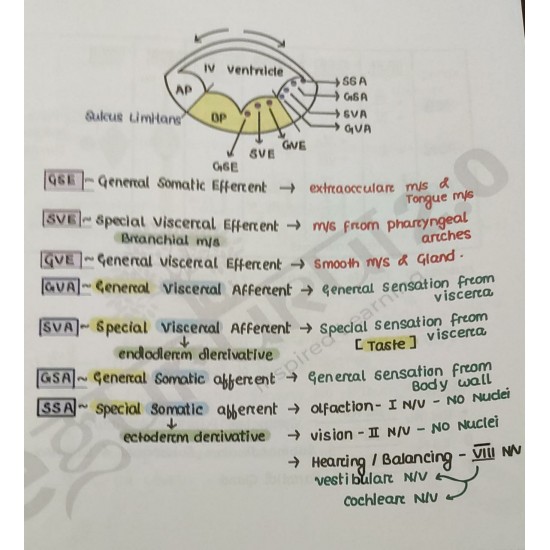 IV ventricle
AP
BP
Sulcus Limitans
SSA
GSA
SVA
GVA
GSE
SVE
GVE
GSE ~ General Somatic Efferent → extraoccular m/s &
Tongue m/s
SVE ~ Special Visceral Efferent → m/s from pharyngeal
arches
Branchial m/s
GVE ~ General Visceral Efferent → Smooth m/s & Gland.
GVA ~ General Visceral Afferent → General Sensation from
viscera
SVA ~ Special Visceral Afferent → Special Sensation from
viscera
[Taste]
endoderm derivative
GSA ~ General Somatic afferent → General Sensation from
Body wall
SSA ~ Special Somatic afferent → olfaction - I N/V - NO Nuclei
ectoderm derivative → vision - II N/V - NO Nuclei
→ Hearing / Balancing - VIII N/V
vestibular N/V
cochlear N/V